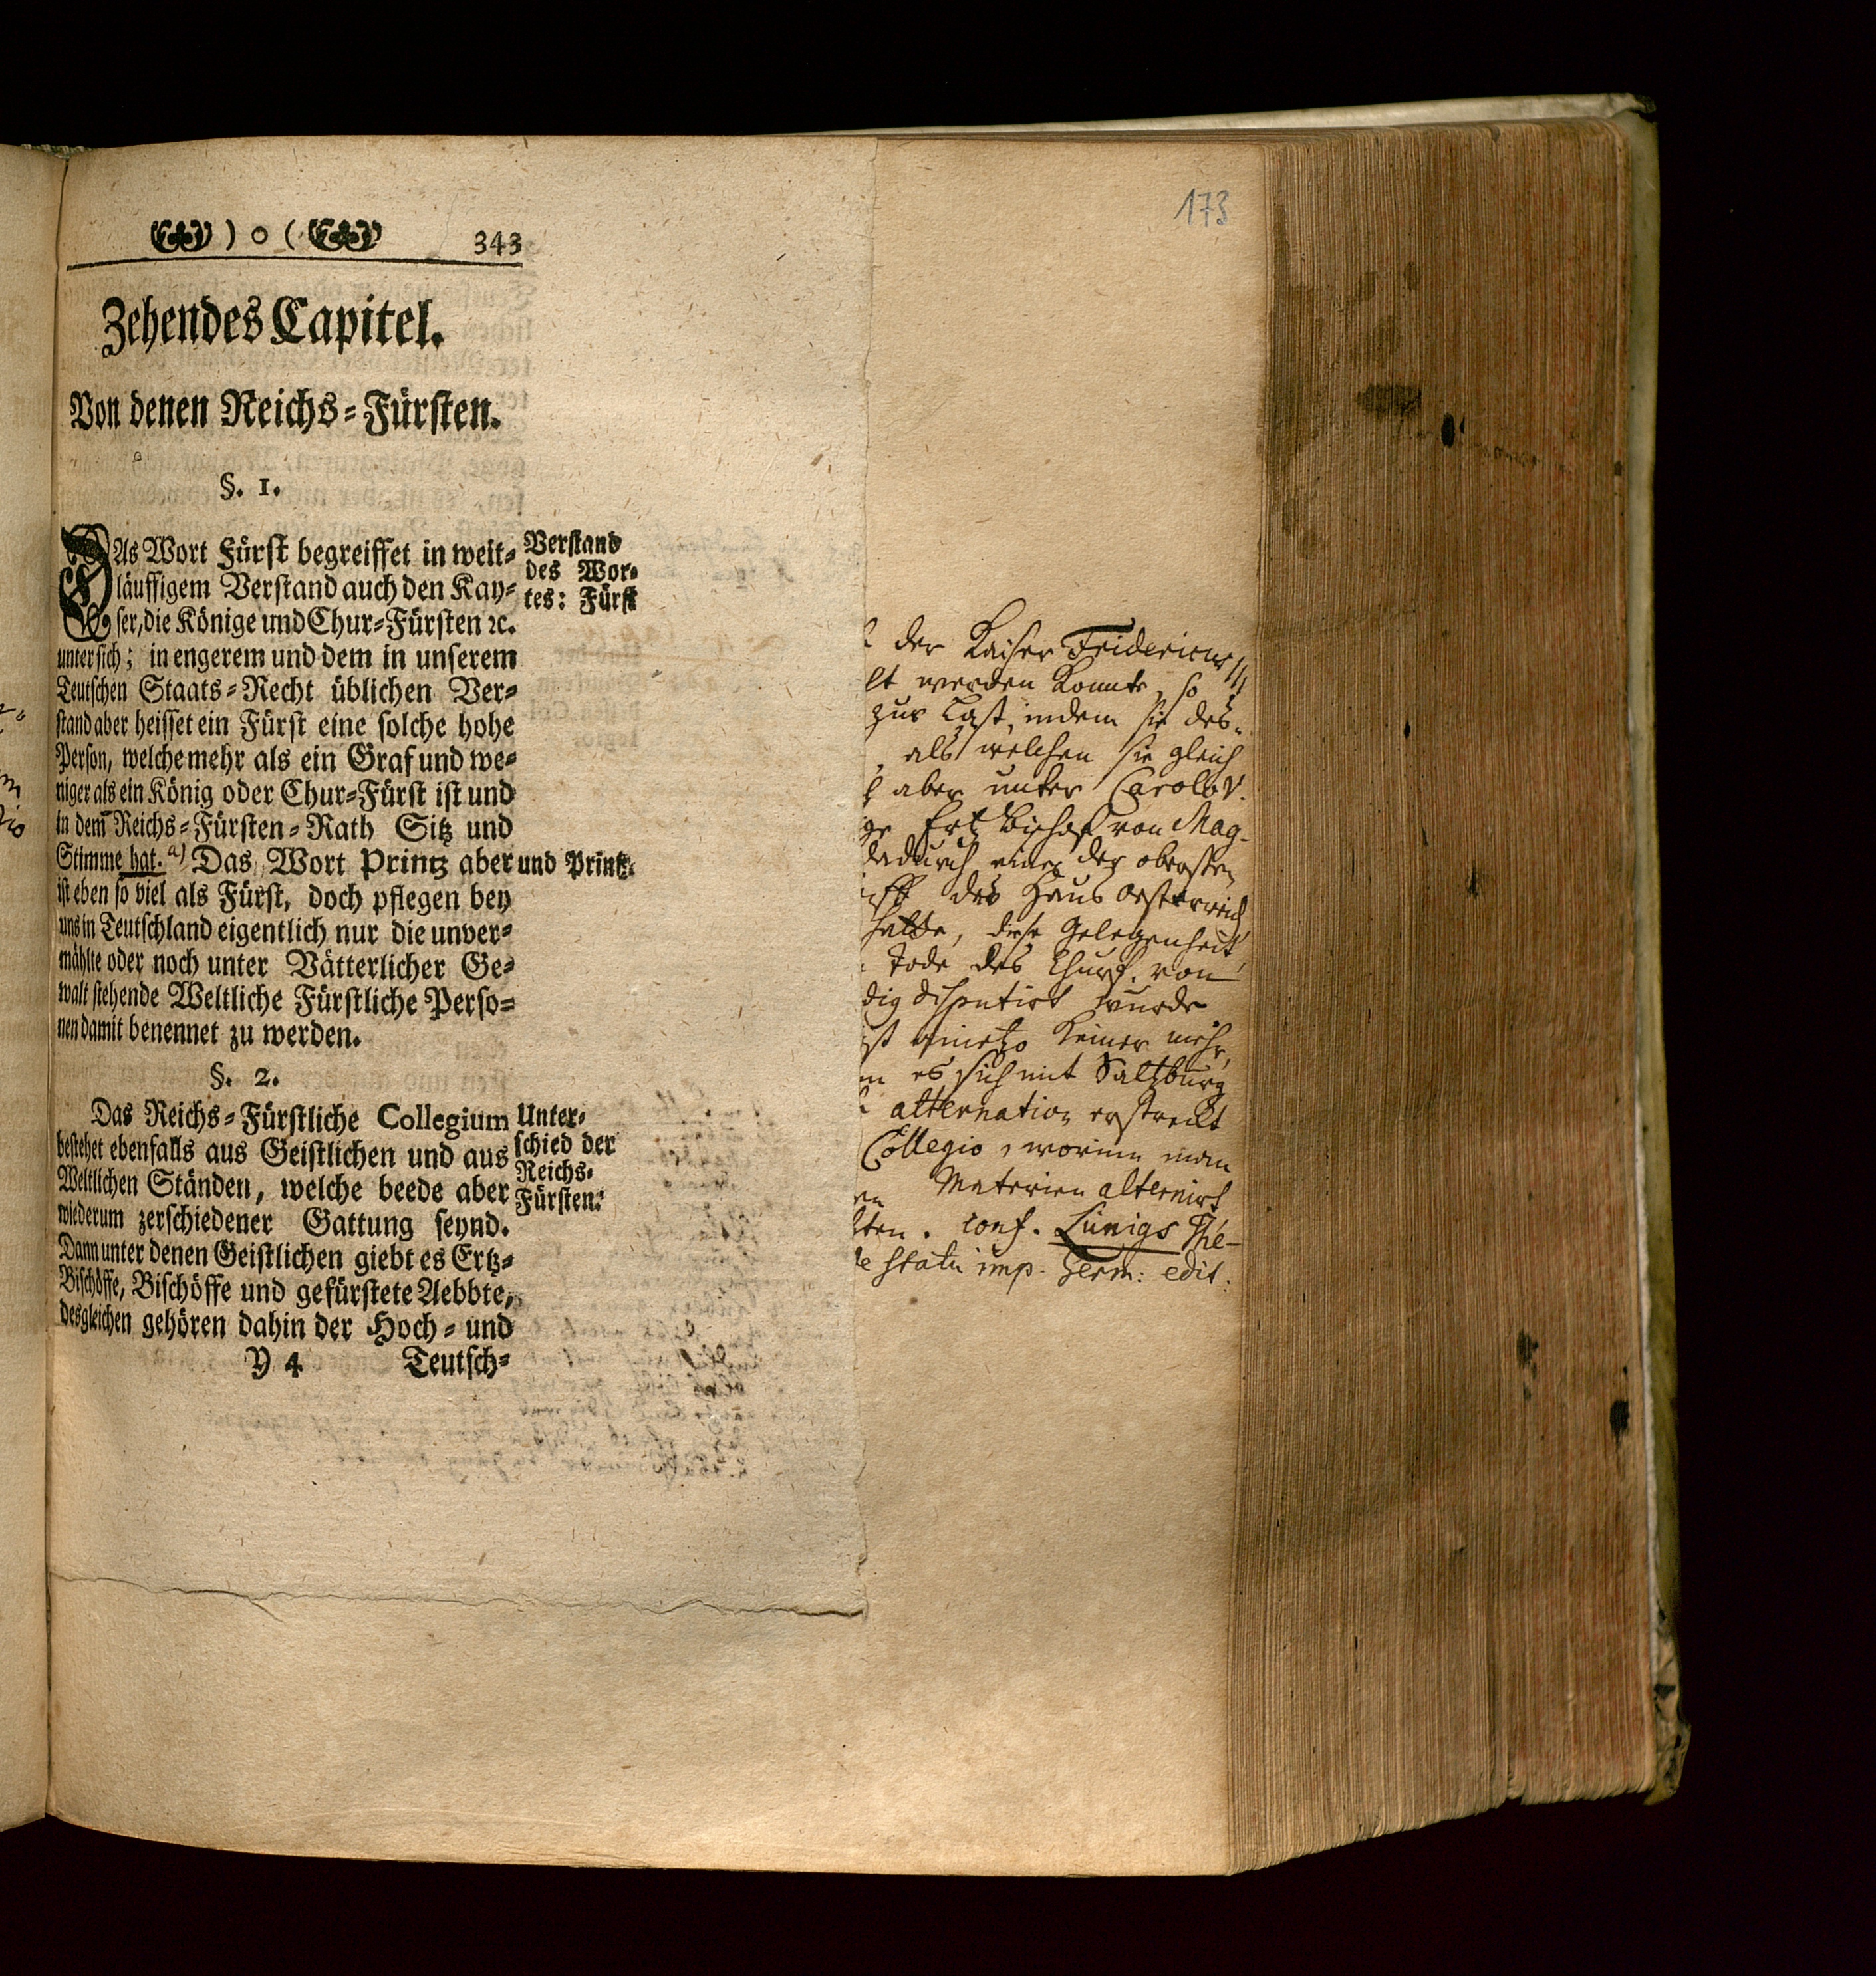 173
) o ( 343
Zehendes Capitel.
Von denen Reichs-Fürsten.
§. 1.
DAs Wort Fürst begreiffet in weit-
läuffigem Verstand auch den Kay-
ser, die Könige und Chur-Fürsten ꝛc.
unter sich; in engerem und dem in unserem
Teutschen Staats-Recht üblichen Ver-
stand aber heisset ein Fürst eine solche hohe
Person, welche mehr als ein Graf und we-
niger als ein König oder Chur-Fürst ist und
in dem Reichs-Fürsten-Rath Sitz und
Stimme hat. a) Das Wort Printz aber
ist eben so viel als Fürst, doch pflegen bey
uns in Teutschland eigentlich nur die unver-
mählte oder noch unter Vätterlicher Ge-
walt stehende Weltliche Fürstliche Perso-
nen damit benennet zu werden.
Verstand
des Wor-
tes: Fürst
und Printz.
§. 2.
Das Reichs-Fürstliche Collegium
bestehet ebenfalls aus Geistlichen und aus
Weltlichen Ständen, welche beede aber
wiederum zerschiedener Gattung seynd.
Dann unter denen Geistlichen giebt es Ertz-
Bischöffe, Bischöffe und gefürstete Aebbte,
desgleichen gehören dahin der Hoch- und
Y 4 Teutsch-
Unter-
schied der
Reichs-
Fürsten.
der Kaiser Fridericus III
lt werden konnte, so
zur Last, indem sie des-
als welchen sie gleich
aber unter Carolo V.
ge Ertz Bischof von Mag-
dadurch einen der obersten
des Haus Oesterreich
hatte, diese Gelegenheit
Tode des Churf. von
dig disputirt wurde
st keiner mehr,
es sich mit Saltzburg
alternation erstreckt
Collegio, worinn man
en Materien alternirt
lten. conf. Lünigs The-
e statu imp. Germ: edit.